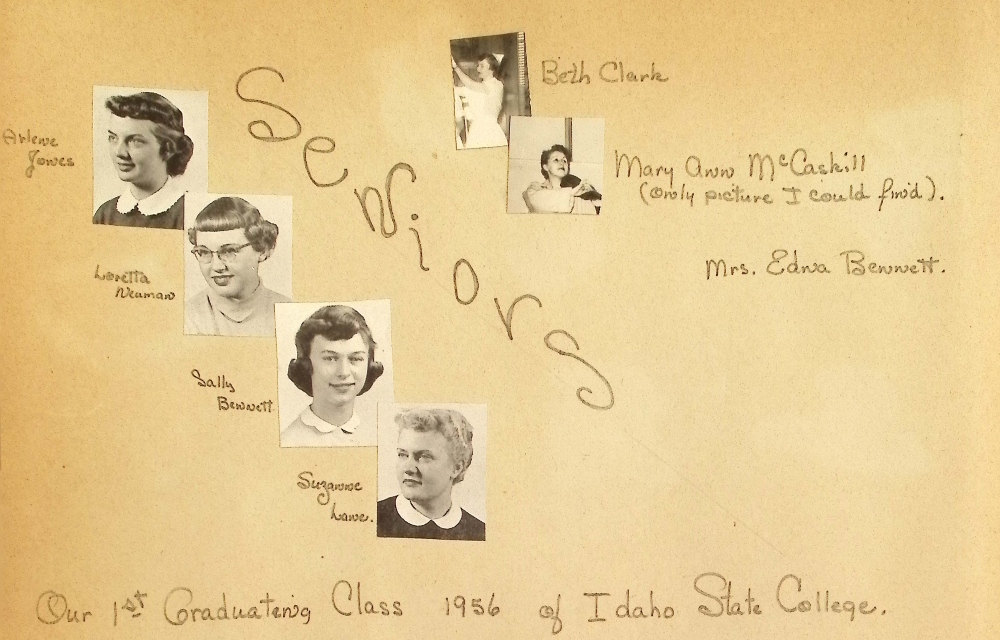 Seniors
Arlene
Jones
Loretta
Neuman
Sally
Bennett
Suzanne
Lane.
Beth Clark
Mary Ann McCaskill
(only picture I could find).
Mrs. Edna Bennett.
Our 1st Graduateing Class 1956 of Idaho State College.